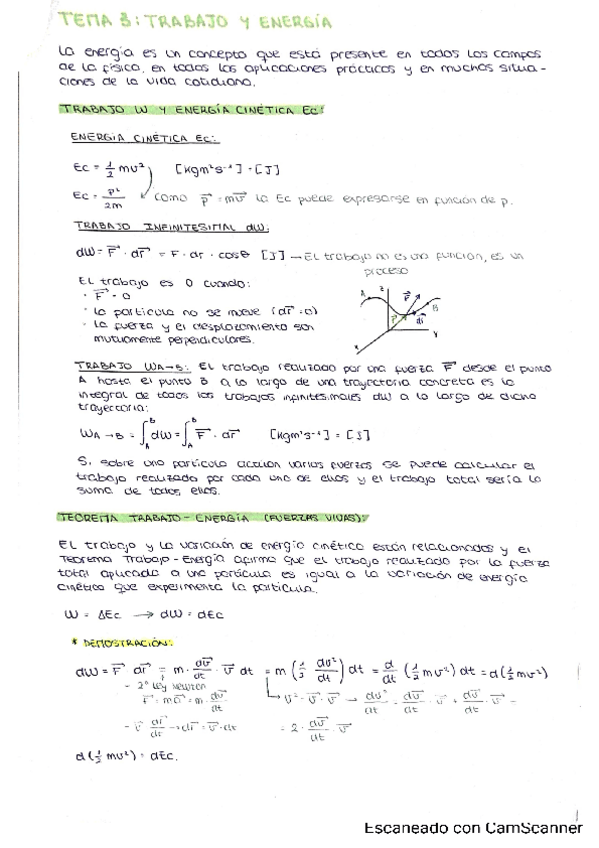 TEMA 3: TRABAJO Y ENERGÍA
La energía es un concepto que está presente en todos los campos
de la física, en todas las aplicaciones prácticas y en muchas situa-
ciones de la vida cotidiana.
TRABAJO W Y ENERGÍA CINÉTICA Ec:
ENERGÍA CINÉTICA Ec:
Ec = 1/2 mv² [kgm²s⁻²] = [J]
Ec = p²/2m como p⃗ = mv⃗ la Ec puede expresarse en función de p.
TRABAJO INFINITESIMAL dW:
dW = F⃗ · dr⃗ = F · dr · cosθ [J] — El trabajo no es una función, es un
proceso
El trabajo es 0 cuando:
· F⃗ = 0
· la partícula no se mueve (dr⃗ = 0)
· la fuerza y el desplazamiento son
mutuamente perpendiculares.
A z F⃗ B
r⃗ dr⃗
x y
TRABAJO WA→B: El trabajo realizado por una fuerza F⃗ desde el punto
A hasta el punto B a lo largo de una trayectoria concreta es la
integral de todos los trabajos infinitesimales dW a lo largo de dicha
trayectoria:
WA→B = ∫_A^B dW = ∫_A^B F⃗ · dr⃗ [kgm²s⁻²] = [J]
Si sobre una partícula actúan varias fuerzas se puede calcular el
trabajo realizado por cada una de ellas y el trabajo total sería la
suma de todos ellos.
TEOREMA TRABAJO - ENERGÍA (FUERZAS VIVAS):
El trabajo y la variación de energía cinética están relacionados y el
Teorema Trabajo - Energía afirma que el trabajo realizado por la fuerza
total aplicada a una partícula es igual a la variación de energía
cinética que experimenta la partícula.
W = ΔEc → dW = dEc
* DEMOSTRACIÓN:
dW = F⃗ dr⃗ = m · dv⃗/dt · v⃗ dt = m (1/2 dv²/dt) dt = d/dt (1/2 mv²) dt = d(1/2 mv²)
- 2ª Ley Newton
F⃗ = ma⃗ = m · dv⃗/dt
v² = v⃗ · v⃗ → dv²/dt = dv⃗/dt · v⃗ + dv⃗/dt · v⃗ =
- v⃗ = dr⃗/dt → dr⃗ = v⃗ · dt
= 2 · dv⃗/dt · v⃗
d(1/2 mv²) = dEc.
1
Escaneado con CamScanner